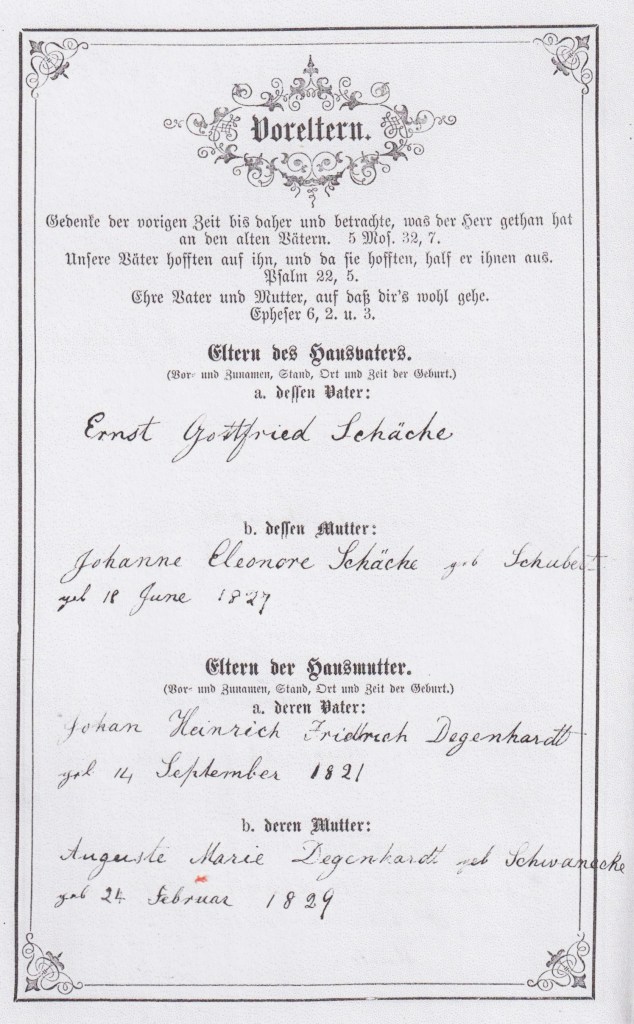 Voreltern.
Gedenke der vorigen Zeit bis daher und betrachte, was der Herr gethan hat
an den alten Vätern. 5 Mos. 32, 7.
Unsere Väter hofften auf ihn, und da sie hofften, half er ihnen aus.
Psalm 22, 5.
Ehre Vater und Mutter, auf daß dir's wohl gehe.
Epheser 6, 2. u. 3.
Eltern des Hausvaters.
(Vor- und Zunamen, Stand, Ort und Zeit der Geburt.)
a. dessen Vater:
Ernst Gottfried Schäche
b. dessen Mutter:
Johanne Eleonore Schäche geb Schubert
geb 18 June 1827
Eltern der Hausmutter.
(Vor- und Zunamen, Stand, Ort und Zeit der Geburt.)
a. deren Vater:
Johan Heinrich Fridrich Degenhardt
geb 14 September 1821
b. deren Mutter:
Auguste Marie Degenhardt geb Schwanecke
geb 24 Februar 1829